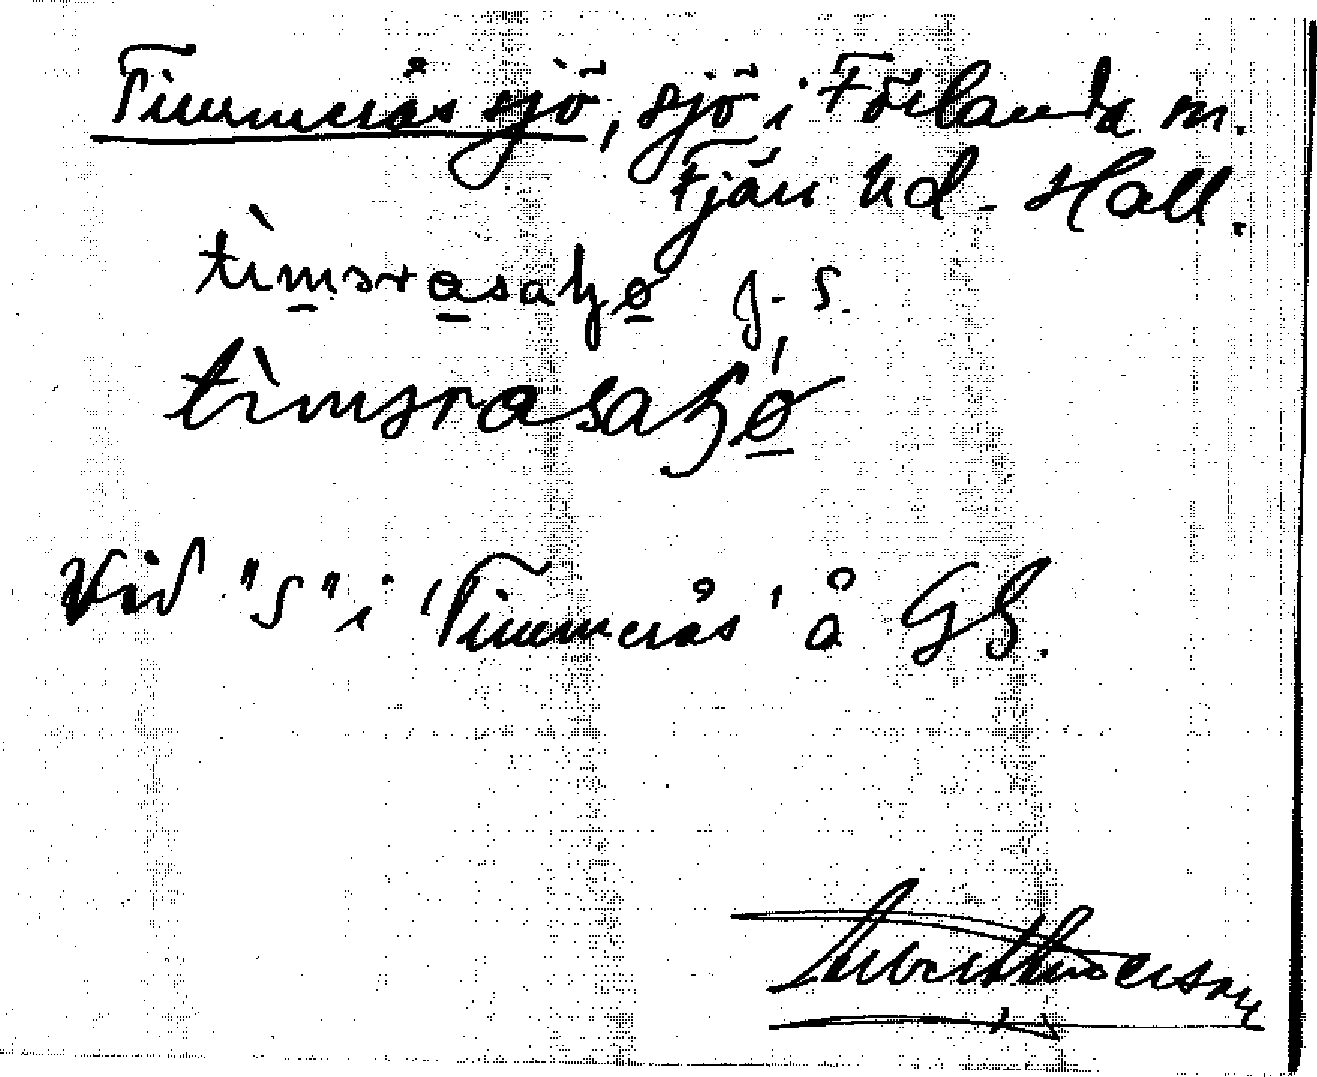 Timmerås sjö, sjö i Förlanda sn.
Fjäre hd. Hall.
tìmərasaʃø g. S.
tìmərasaʃø
Vid "S" i 'Timmerås' å GS.